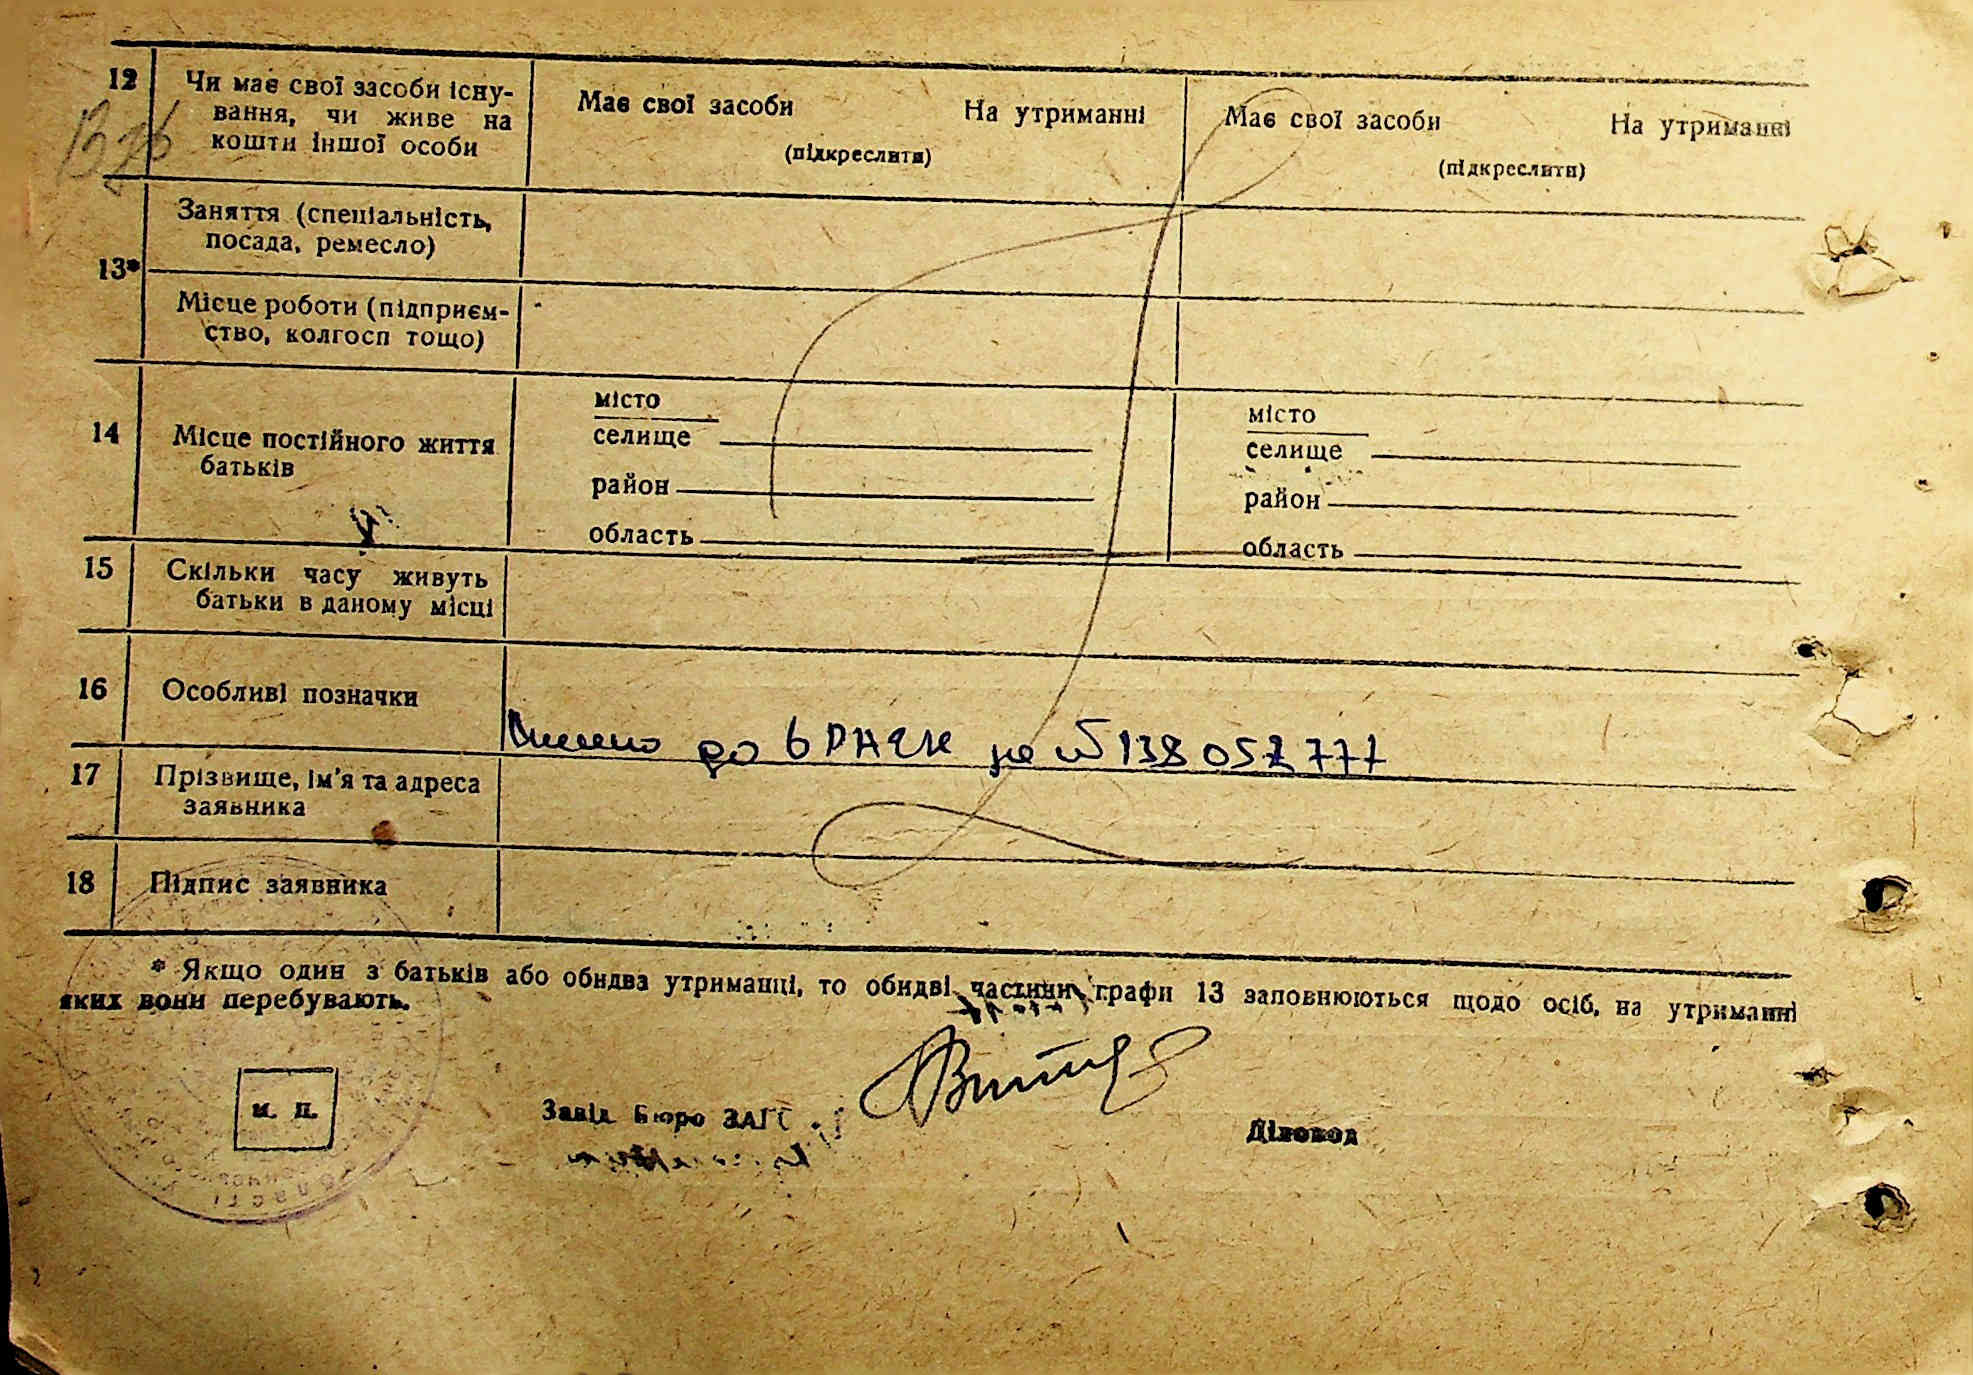 12
Чи має свої засоби існу-
вання, чи живе на
кошти іншої особи
Має свої засоби На утриманні
(підкреслити)
Має свої засоби На утриманні
(підкреслити)
13*
Заняття (спеціальність,
посада, ремесло)
Місце роботи (підприєм-
ство, колгосп тощо)
14
Місце постійного життя
батьків
місто
селище
район
область
місто
селище
район
область
15
Скільки часу живуть
батьки в даному місці
16
Особливі позначки
до ДРАЦС за № 138 052 777
17
Прізвище, ім'я та адреса
заявника
18
Підпис заявника
* Якщо один з батьків або обидва утриманці, то обидві частини графи 13 заповнюються щодо осіб, на утриманні
яких вони перебувають.
м. п.
Завід. Бюро ЗАГС
Діловод